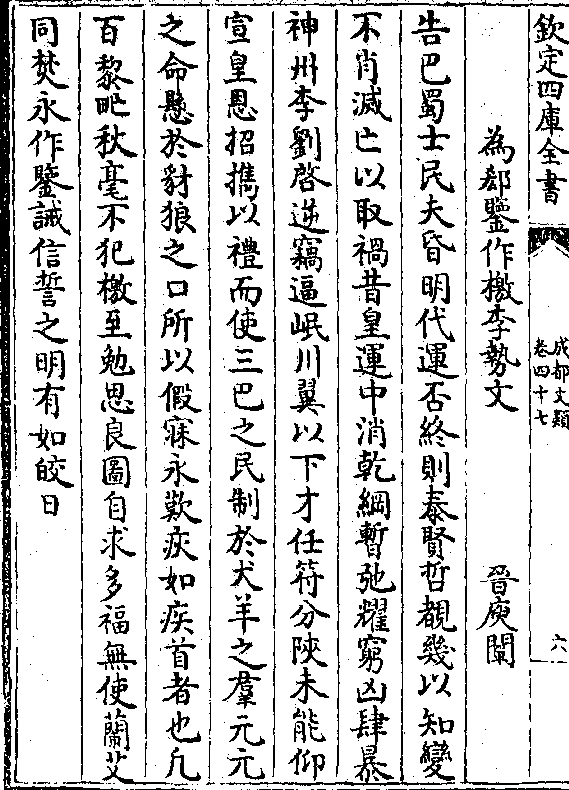 欽定四庫全書
成都文類
卷四十七
六
為郄鑒作檄李勢文　晉庾闡
告巴蜀士民夫昏明代運否終則泰賢哲覩幾以知變
不肖滅亡以取禍昔皇運中消乾綱暫弛耀窮凶肆暴
神州李劉啓逆竊逼岷川翼以下才任符分陝未能仰
宣皇恩招携以禮而使三巴之民制於犬羊之羣元元
之命懸於豺狼之口所以假寐永歎疢如疾首者也凡
百黎甿秋毫不犯檄至勉思良圖自求多福無使蘭艾
同焚永作鑒誡信誓之明有如皎日